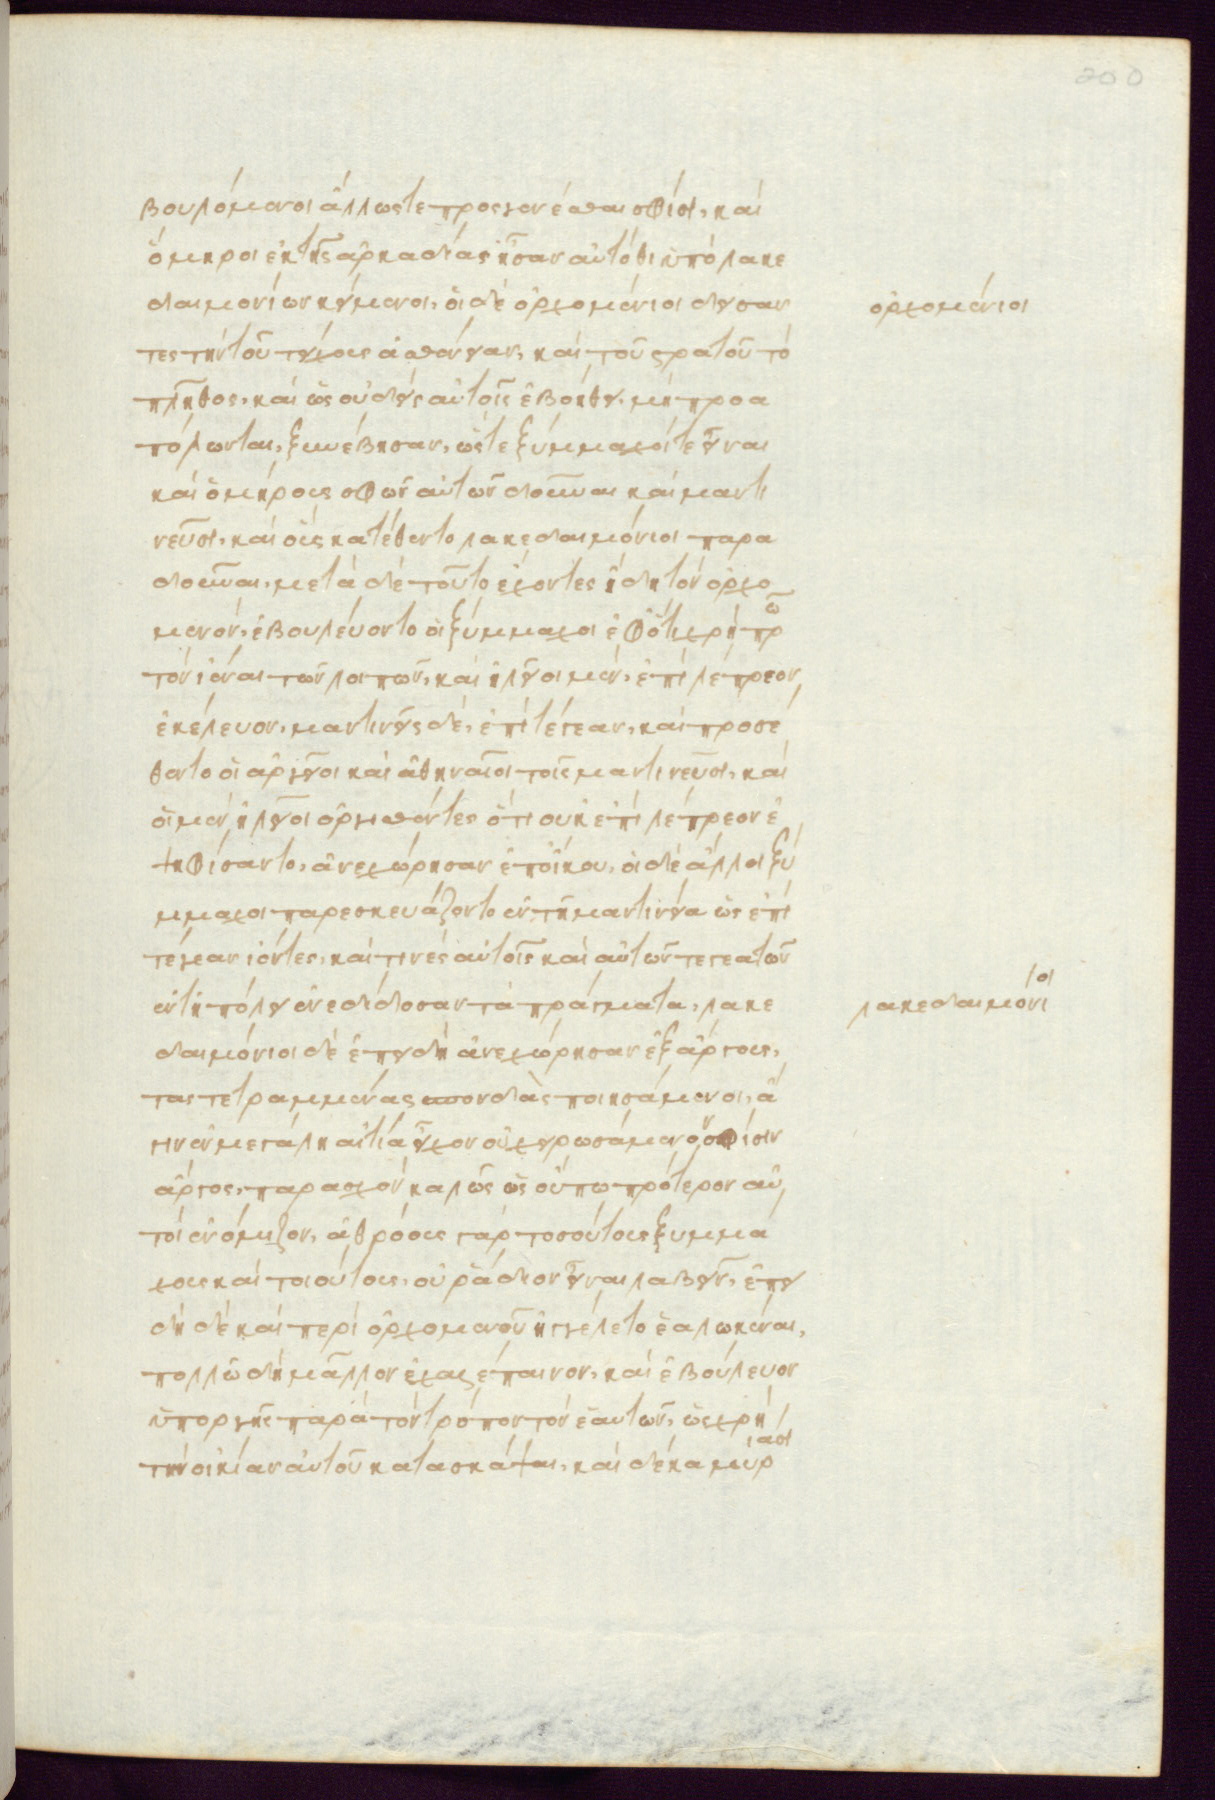 200
βουλόμενοι ἄλλως τε προσγενέσθαι σφίσι, καὶ
ὅμηροι ἐκ τῆς ἀρκαδίας ἦσαν αὐτόθι ὑπὸ λακε
δαιμονίων κείμενοι, οἱ δὲ ὀρχομένιοι δείσαν
ὀρχομένιοι
τες τὴν τοῦ τείχους ἀσθένειαν, καὶ τοῦ στρατοῦ τὸ
πλῆθος, καὶ ὡς οὐδεὶς αὐτοῖς ἐβοήθει, μὴ προα
πόλωνται, ξυνέβησαν, ὥστε ξύμμαχοί τε εἶναι
καὶ ὁμήρους σφῶν αὐτῶν δοῦναι καὶ μαντι
νεῦσι, καὶ οὓς κατέθεντο λακεδαιμόνιοι παρα
δοῦναι, μετὰ δὲ τοῦτο ἔχοντες ἤδη τὸν ὀρχο
μενόν, ἐβουλεύοντο οἱ ξύμμαχοι ἐφ' ὅτι χρὴ πρῶ
τον ἰέναι τῶν λοιπῶν, καὶ ἠλεῖοι μέν, ἐπὶ λέπρεον
ἐκέλευον, μαντινῆς δέ, ἐπὶ τέγεαν, καὶ προσέ
θεντο οἱ ἀργεῖοι καὶ ἀθηναῖοι τοῖς μαντινεῦσι, καὶ
οἱ μὲν ἠλεῖοι ὀργισθέντες ὅτι οὐκ ἐπὶ λέπρεον ἐ
ψηφίσαντο, ἀνεχώρησαν ἐπ' οἴκου, οἱ δὲ ἄλλοι ξύ
μμαχοι παρεσκευάζοντο ἐν τῇ μαντινείᾳ ὡς ἐπὶ
τέγεαν ἰόντες, καί τινες αὐτοῖς καὶ αὐτῶν τεγεατῶν
ἐν τῇ πόλει ἐνεδίδοσαν τὰ πράγματα, λακε
λακεδαιμόνιοι
δαιμόνιοι δὲ ἐπειδὴ ἀνεχώρησαν ἐξ ἄργους,
τὰς τετραμμένας σπονδὰς ποιησάμενοι, ἆ
γιν ἐν μεγάλῃ αἰτίᾳ εἶχον οὐ χειρωσάμενον σφίσιν
ἄργος, παρασχὸν καλῶς ὡς οὔπω πρότερον αὐ
τοὶ ἐνόμιζον, ἀθρόους γὰρ τοσούτους ξυμμά
χους καὶ τοιούτους, οὐ ῥᾴδιον εἶναι λαβεῖν, ἐπει
δὴ δὲ καὶ περὶ ὀρχομενοῦ ἠγγέλετο ἑαλωκέναι,
πολλῷ δὴ μᾶλλον ἐχαλέπαινον, καὶ ἐβούλευον
ὑπ' ὀργῆς παρὰ τὸν τρόπον τὸν ἑαυτῶν, ὡς χρὴ
τήν οἰκίαν αὐτοῦ κατασκάψαι, καὶ δέκα μυριάσι